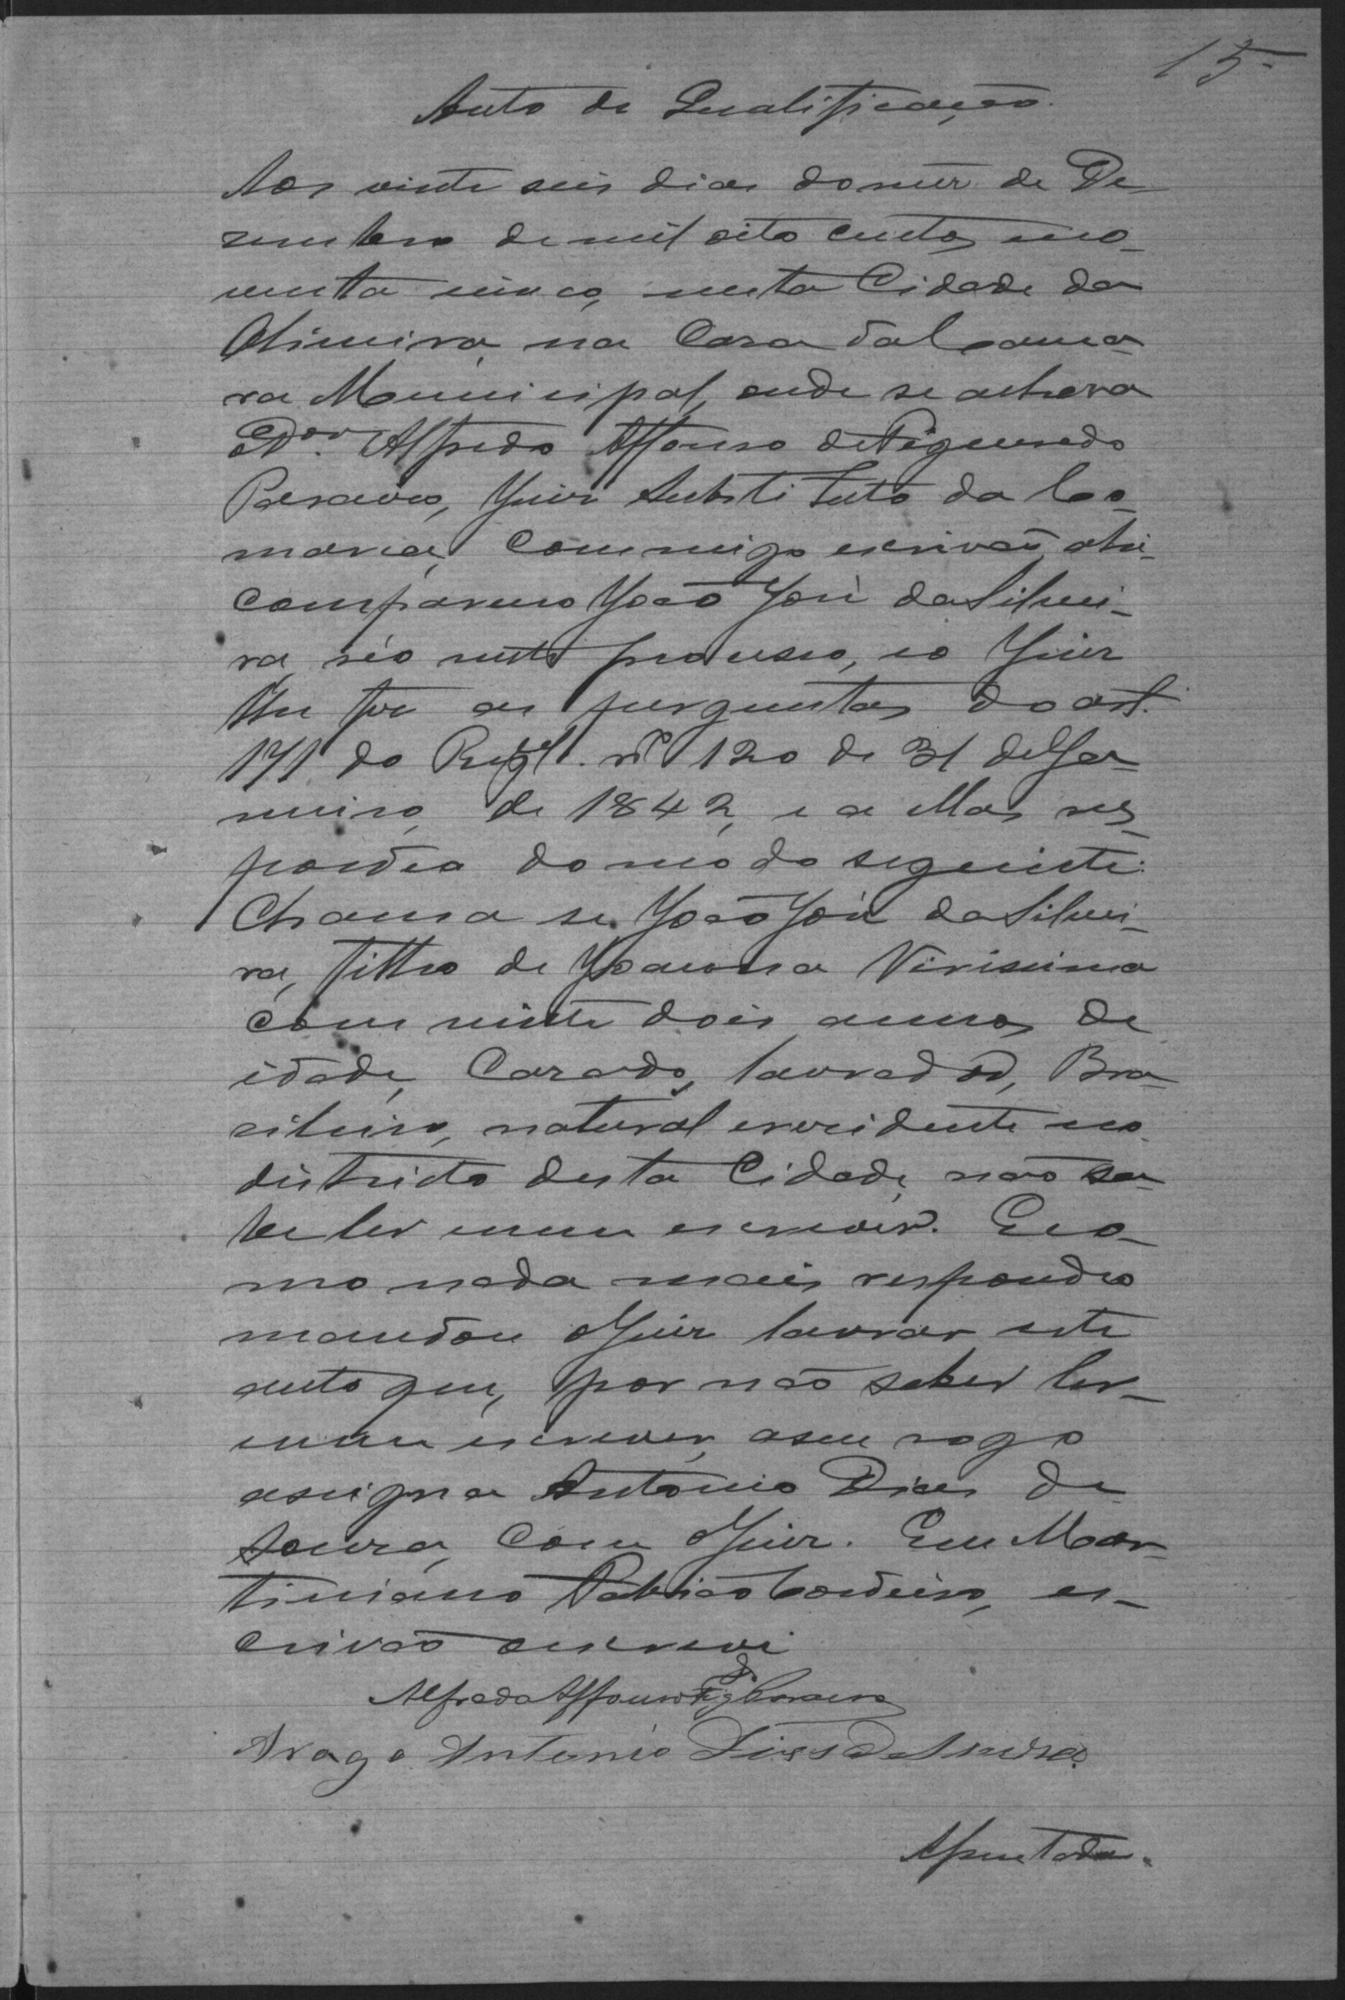 15
Auto de Qualificação
Aos vinte seis dias do mez de De-
zembro de mil oito centos no-
venta cinco, nesta Cidade da
Limeira na Casa da Cama-
ra Municipal, onde se achava
o Dor. Alfredo Affonso de Figueredo
Juiz Substituto da Co-
marca, Commigo escrivão, ahi
compareceo João José da Silvei-
ra, réo neste processo, e o Juiz
lhe fez as perguntas do art.
171 do Regl. nº 120 de 31 de Ja-
neiro de 1842, e a ellas res-
pondeo do modo seguinte:
Chama se João José da Silvei-
ra, filho de Joanna Virissima
com vinte dois annos de
idade, Casado, lavrador, Bra-
sileiro, natural e rezidente no
districto desta Cidade, não sa-
be ler nem escrever. E co-
mo nada mais respondeo
mandou o Juiz lavrar este
auto que, por não saber ler
nem escrever, a seu rogo
assigna Antonio Dias de
Souza, com o Juiz. Eu Mar-
tiniano Cordeiro, es-
crivão o escrevi
Alfredo Affonso Fig
A rogo Antonio Dias de Souza